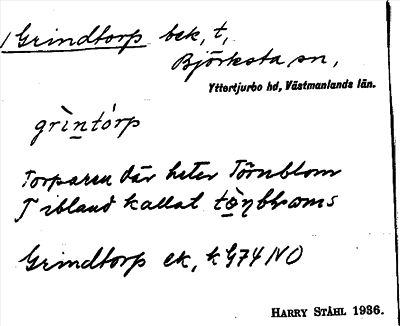 Grindtorp bek, t,
Björksta sn,
Yttertjurbo hd, Västmanlands län.
grìntórp
Torparen där heter Törnblom
T ibland kallat
Grindtorp ek, k G74 NO
HARRY STÅHL 1936.